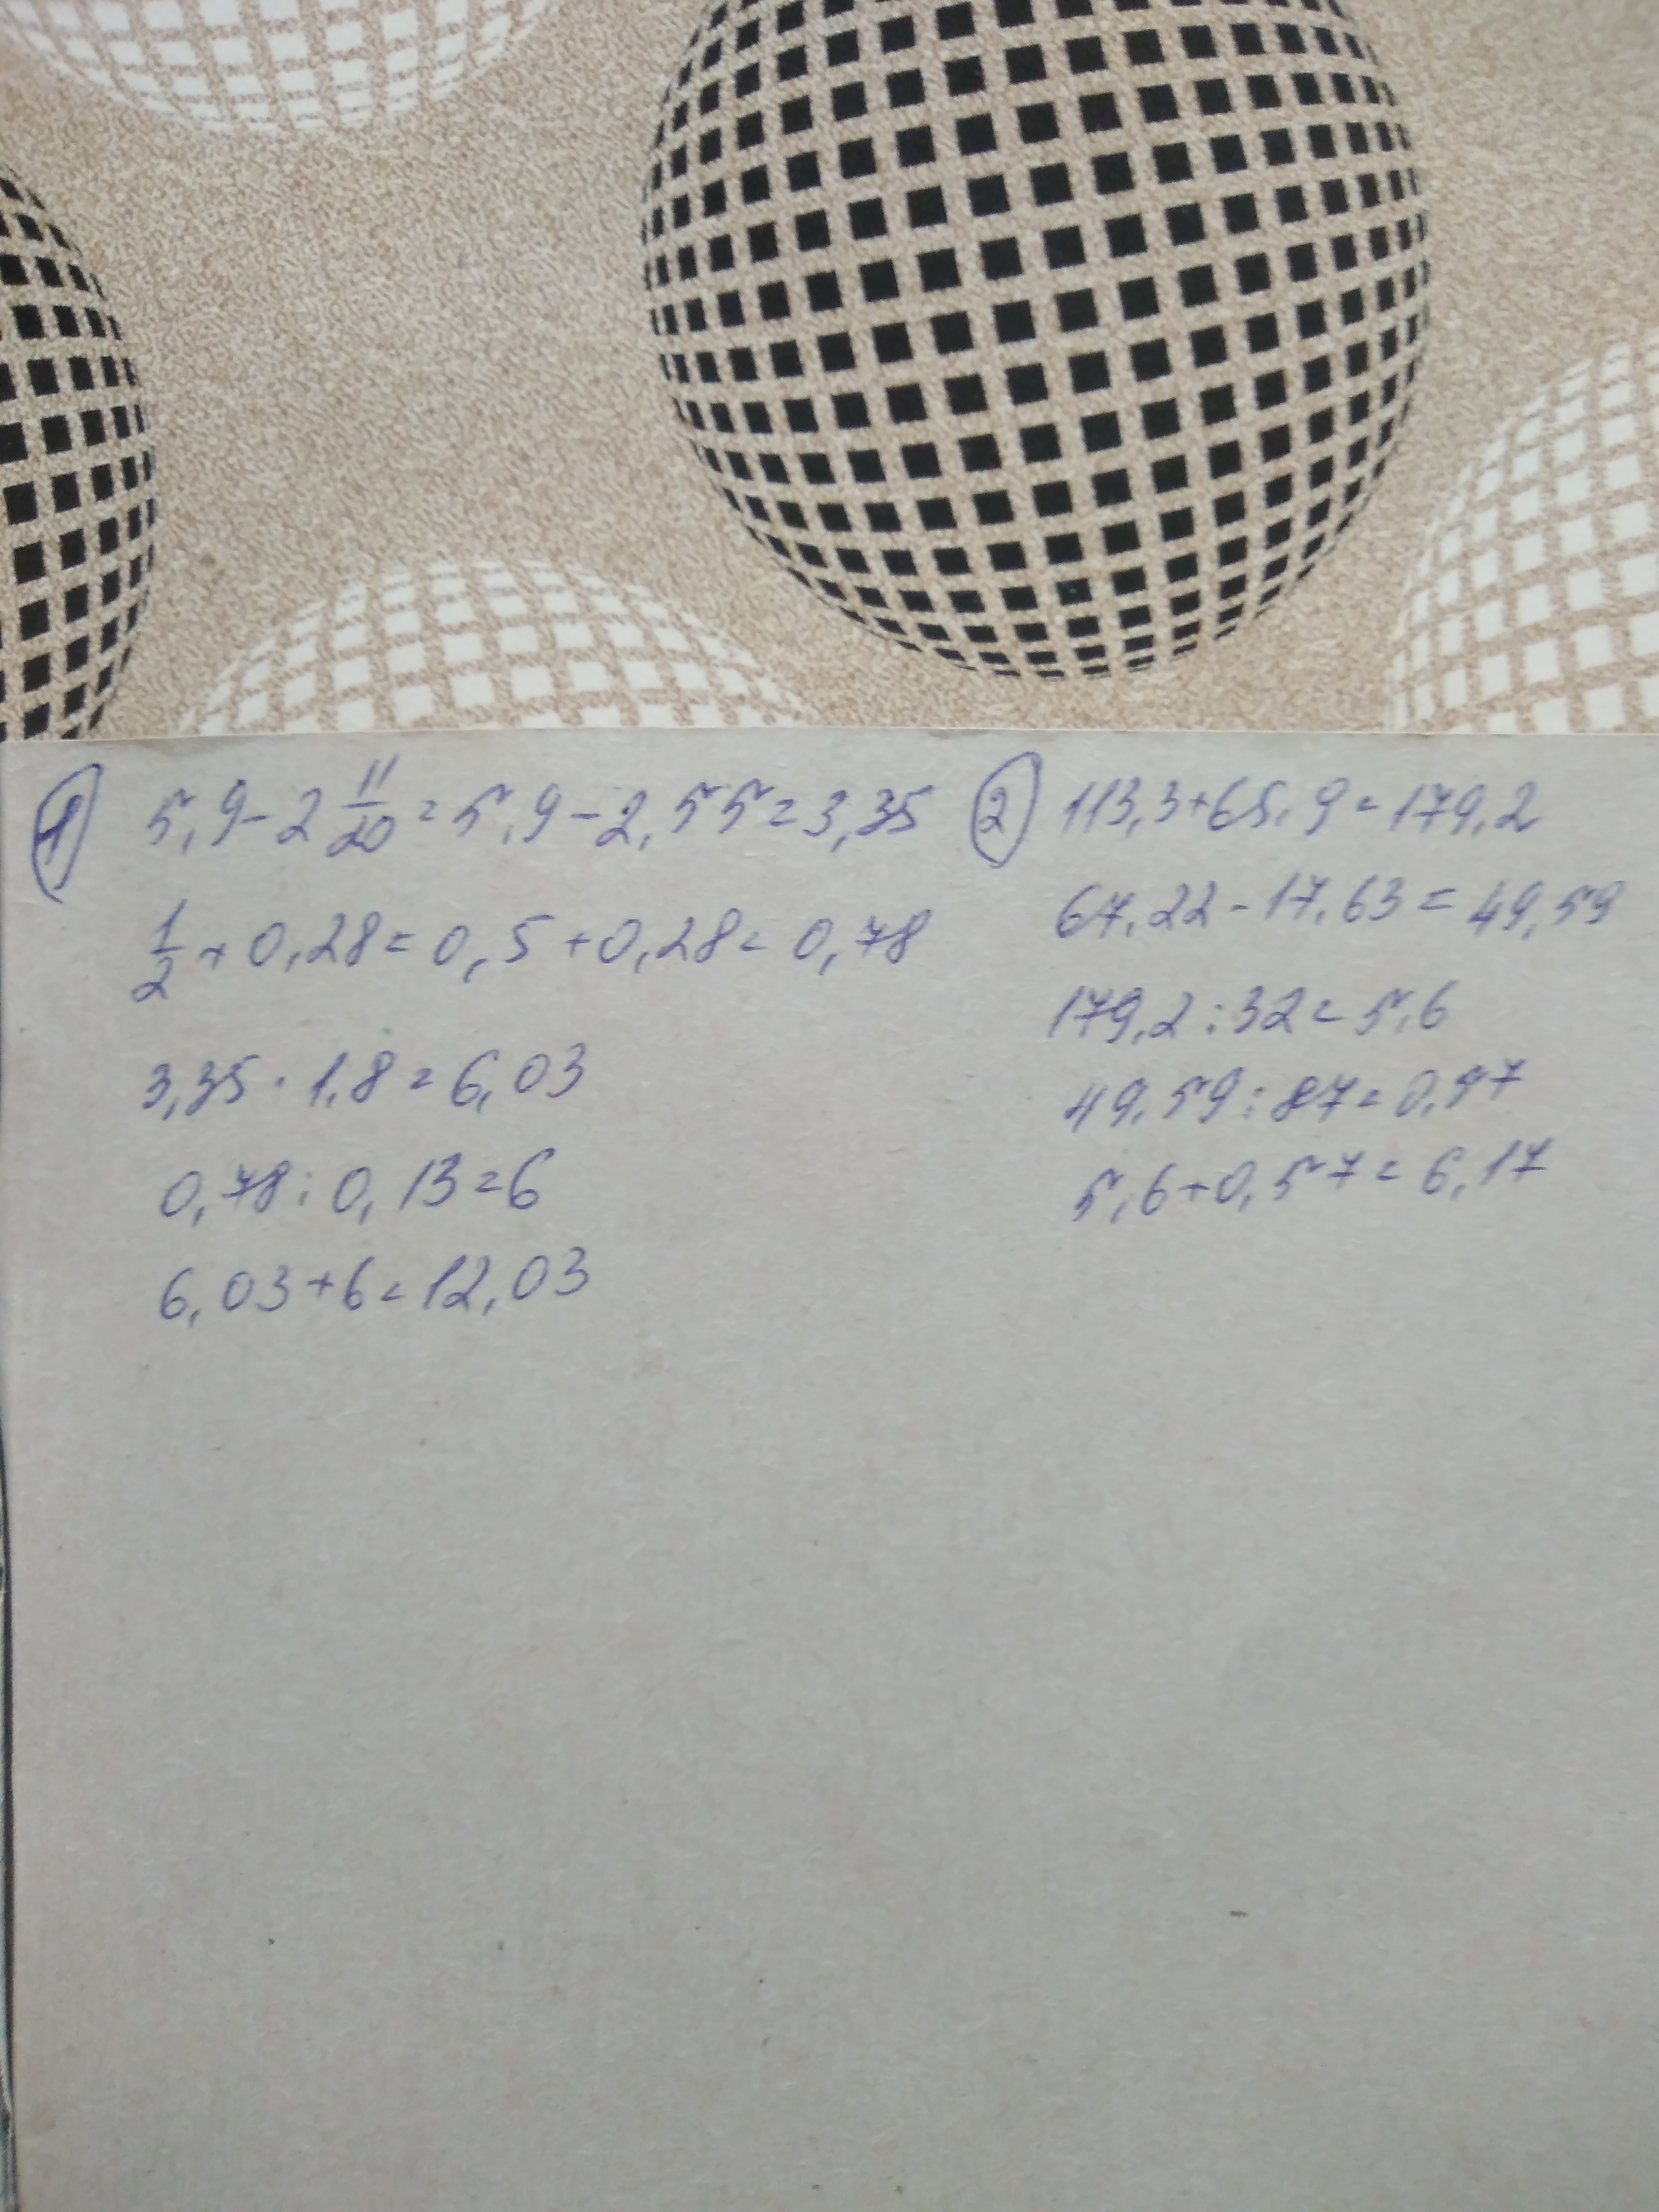 ① 5,9-2 11/20=5,9-2,55=3,35
1/2+0,28=0,5+0,28=0,78
3,35·1,8=6,03
0,78:0,13=6
6,03+6=12,03
② 113,3+65,9=179,2
67,22-17,63=49,59
179,2:32=5,6
49,59:87=0,57
5,6+0,57=6,17